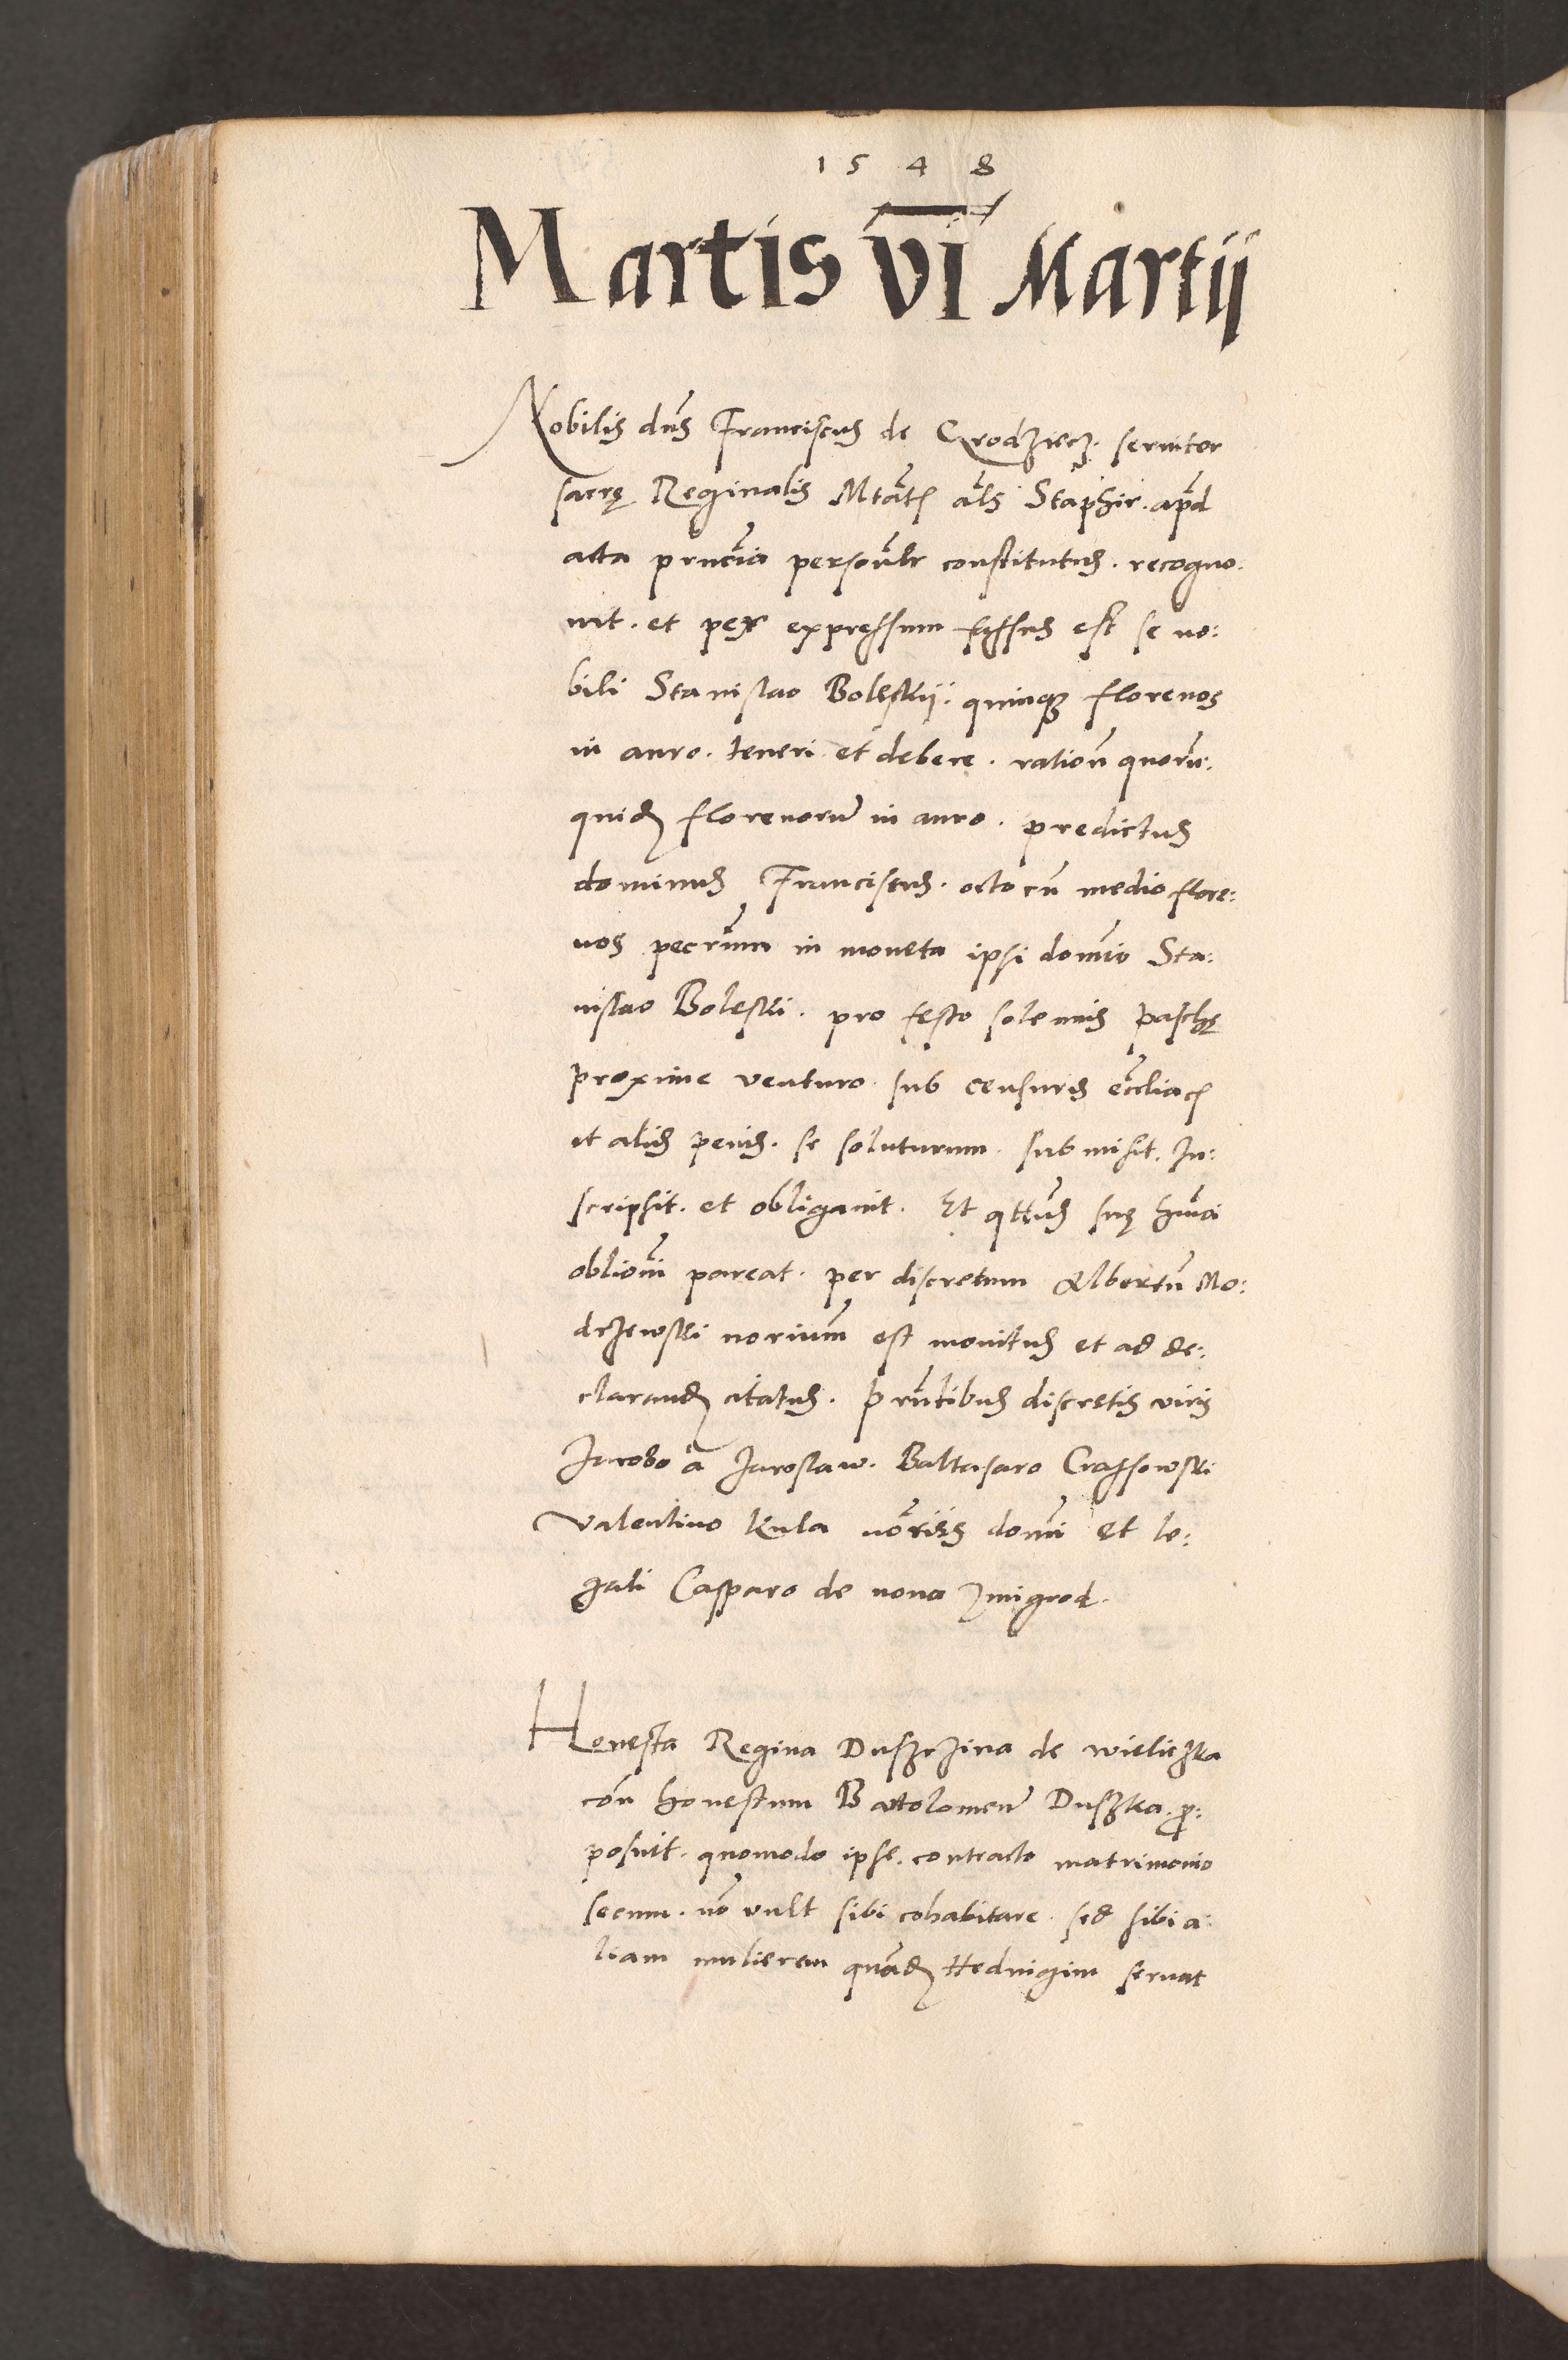 1548
Martis VI Martij
Nobilis dns Franciscus de Grodziecz. seruitor
sacrę Reginalis Mtatis als Staphir. apud
acta prncia personalr constitutus. recogno:
uit. et per expressum fassus est se no:
bili Stanislao Boleskij. quinque florenos
in auro. teneri et debere. rations quorum.
quidem florenorum in auro. predictus
dominus Franciscus. octo cum medio flore:
nos pecunm in moneta ipsi domno Sta:
nislao Boleski. pro festo solemnis paschę
proxime venturo. sub censuris eccliacis
et alijs penis. se soluturum. submisit. In:
scripsit. et obligauit. Et qttus suę huiusmodi
oblioni pareat. per discretum Albertum Mo:
drzewski norium est monitus et ad de:
clarandum citatus. Prntibus discretis viris
Jacobo a Jaroslaw. Baltasaro Crassowski
Valentino Kula notariis domi et le:
gali Casparo de noua Zmigrod.
Honesta Regina Duszczina de Wieliczka
con honestum Bartolomeum Duszka. pro:
posuit. quomodo ipse. contracto matrimonio
secum. no vult sibi cohabitare. sed sibi a:
liam mulierem quandam Heduigim seruat